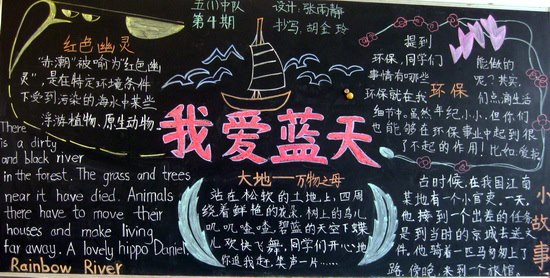 五(1)中队
第4期
设计:张雨静
抄写:胡金玲
红色幽灵
"赤潮"被喻为"红色幽
灵",是在特定环境条件
下受到污染的海水中某些
浮游植物、原生动物
There
is a dirty
and black river
in the forest. The grass and trees
near it have died. Animals
there have to move their
houses and make living
far away. A lovely hippo Daniel.
Rainbow River
我爱蓝天
大地——万物之母
站在松软的土地上,四周
绕着鲜艳的花朵,树上的鸟儿
叽叽喳喳,碧蓝的天空下蝶
儿欢快飞舞,同学们开心地
你追我赶,笑声一片……
环保
提到
环保,同学们能做的
事情有哪些呢?其实,
环保就在我们点滴生活
细节中,虽然年纪小,但你们
也能够在环保事业中起到很
了不起的作用!比如,爱护
小故事
古时候,在我国江南
某地有一个小官吏,一天,
他接到一个出差的任务
是到当时的京城去送文
件,他骑着一匹马匆匆上了
路,傍晚,来到一个旅馆